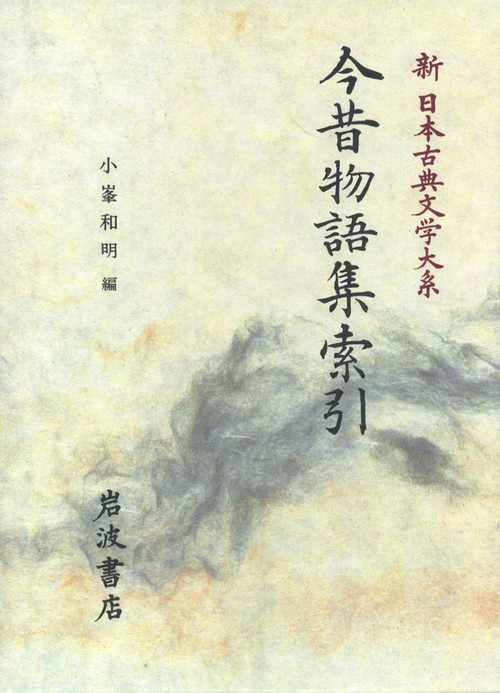 新 日本古典文学大系
今昔物語集索引
小峯和明 編
岩波書店